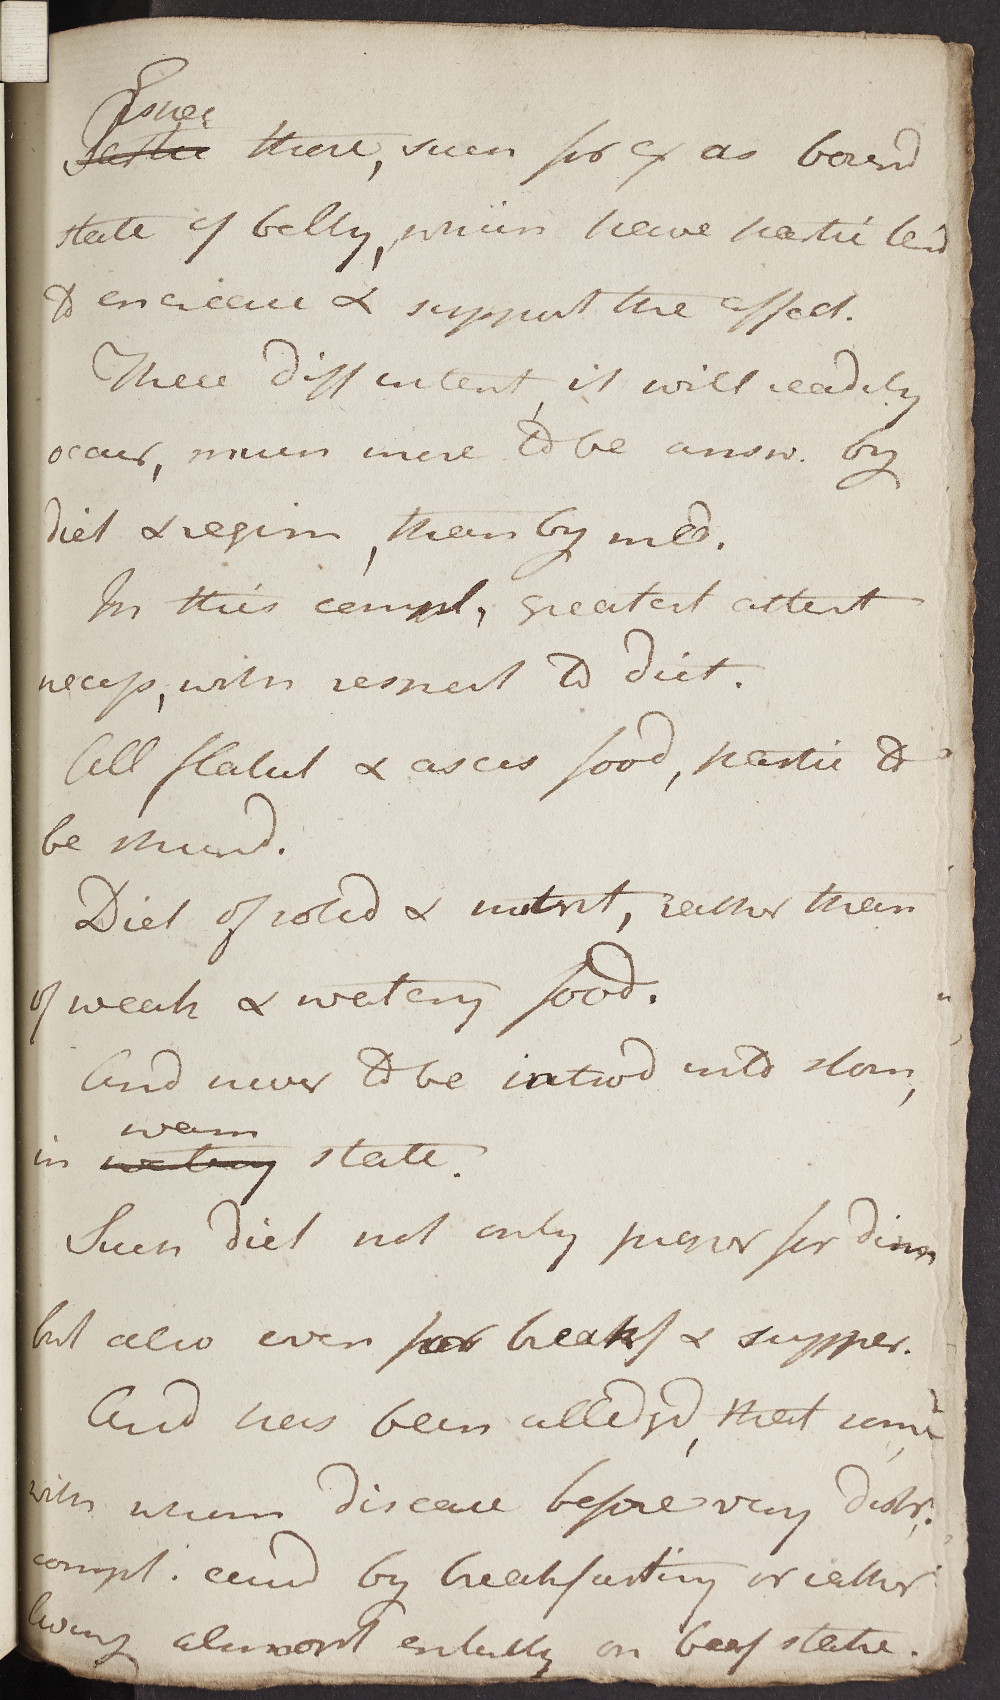 Espec
these, such for ex as bound
state of belly, which have partic tend
to increase & support the affect.
These diff intent, it will readily
occur, much more to be answ. by
diet & regim, than by med.
In this compl, greatest attent
necess, with respect to diet.
All flatul & asces food, partic to
be shund.
Diet of solid & nutrit, rather than
of weak & watery food.
And never to be introd into stom,
warm
in watery state.
Such diet not only proper for dinn
but also even for breakf & supper.
And has been alledgd, that some
with whom disease before very distr.
compl. cured by breakfasting or rather
living almost entirely on beef stake.